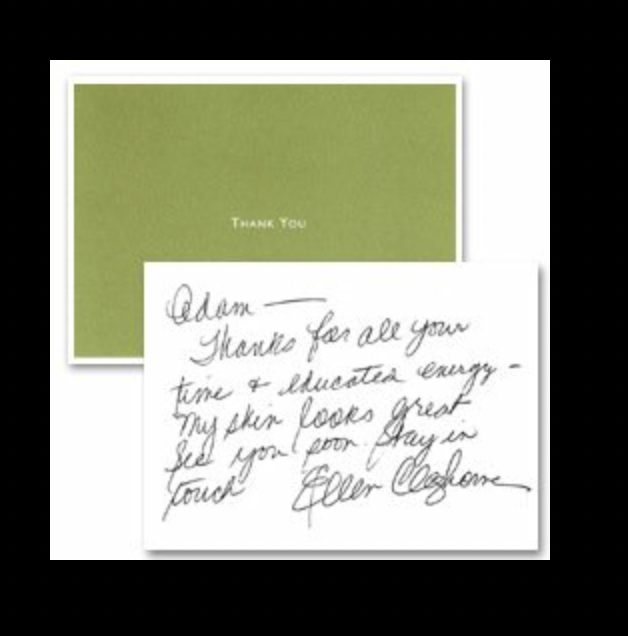 THANK YOU
Adam —
Thanks for all your
time & educated energy -
My skin looks great
See you soon. Stay in
touch Ellen Cleghorne